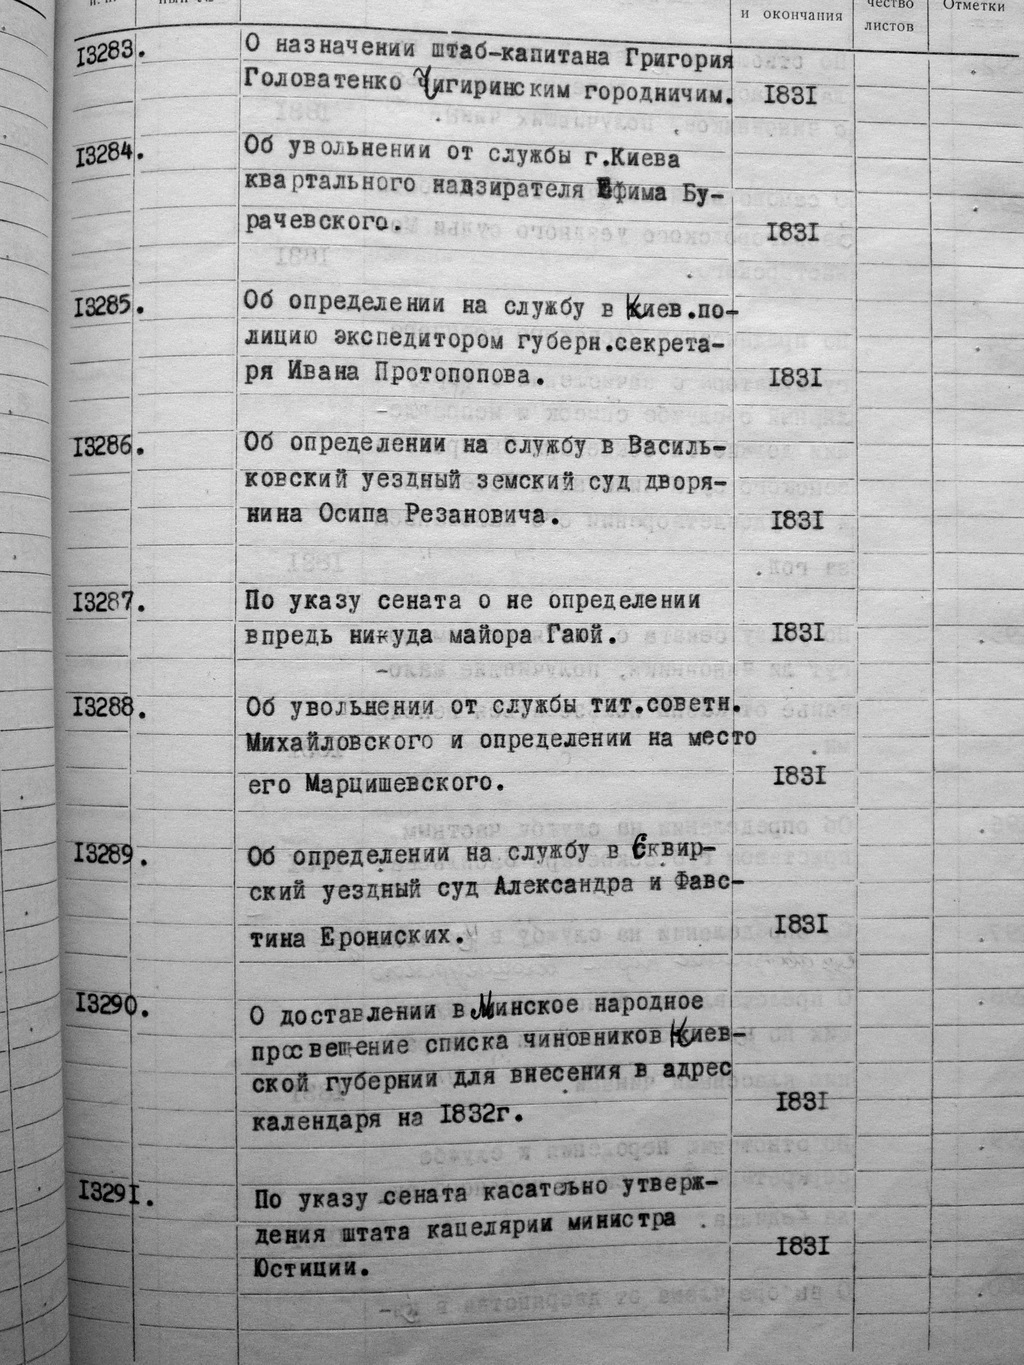 и окончания
чество
листов
Отметки
13283.
О назначении штаб-капитана Григория
Головатенко Чигиринским городничим. 1831
13284.
Об увольнении от службы г.Киева
квартального надзирателя Ефима Бу-
рачевского. 1831
13285.
Об определении на службу в Киев.по-
лицию экспедитором губерн.секрета-
ря Ивана Протопопова. 1831
13286.
Об определении на службу в Василь-
ковский уездный земский суд дворя-
нина Осипа Резановича. 1831
13287.
По указу сената о не определении
впредь никуда майора Гаюй. 1831
13288.
Об увольнении от службы тит.советн.
Михайловского и определении на место
его Марцишевского. 1831
13289.
Об определении на службу в Сквир-
ский уездный суд Александра и Фавс-
тина Ерониских. 1831
13290.
О доставлении в Минское народное
просвещение списка чиновников Киев-
ской губернии для внесения в адрес
календаря на 1832г. 1831
13291.
По указу сената касательно утверж-
дения штата кацелярии министра
Юстиции. 1831